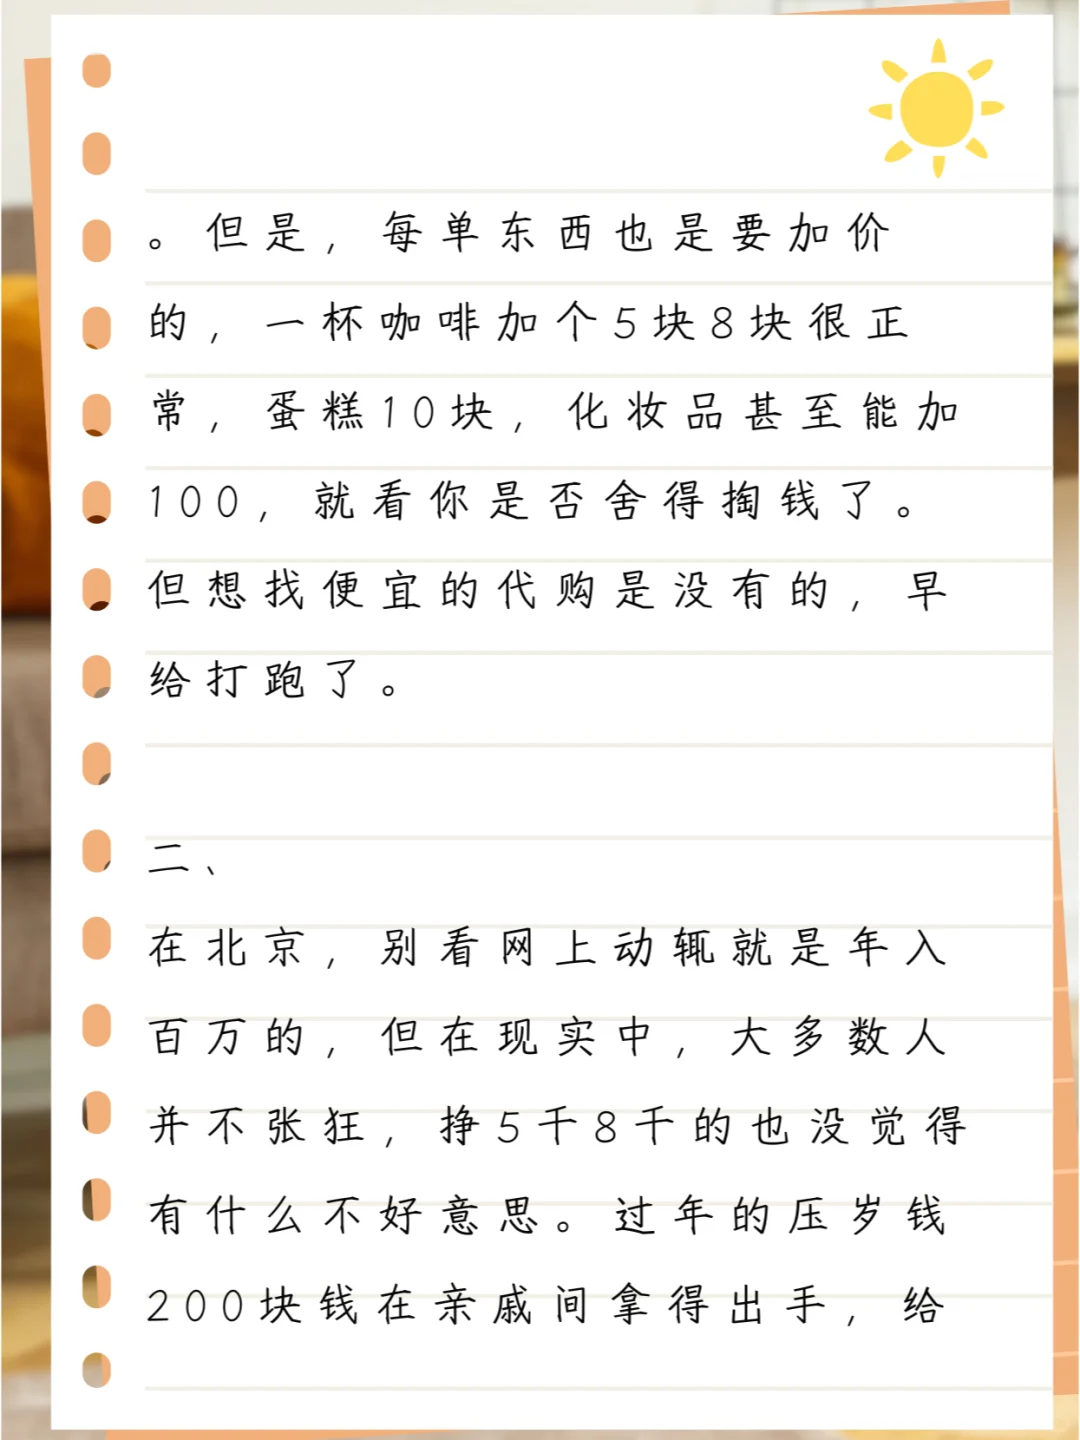 。但是，每单东西也是要加价
的，一杯咖啡加个5块8块很正
常，蛋糕10块，化妆品甚至能加
100，就看你是否舍得掏钱了。
但想找便宜的代购是没有的，早
给打跑了。
二、
在北京，别看网上动辄就是年入
百万的，但在现实中，大多数人
并不张狂，挣5千8千的也没觉得
有什么不好意思。过年的压岁钱
200块钱在亲戚间拿得出手，给